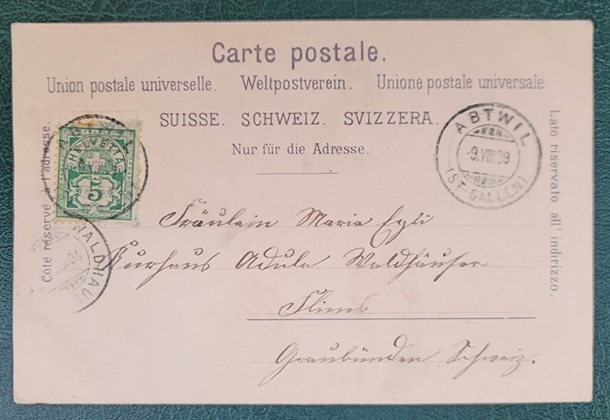 Carte postale.
Union postale universelle. Weltpostverein. Unione postale universale.
SUISSE. SCHWEIZ. SVIZZERA.
Nur für die Adresse.
Côté réservé à l'adresse.
Lato riservato all' indirizzo.
ABTWIL
HELVETIA
5
ABTWIL
9.VIII.09
(ST. GALLEN)
WALDHAUS
Fräulein Maria Egli
Kurhaus Adula Waldhäuser
Flims
Graubünden Schweiz.